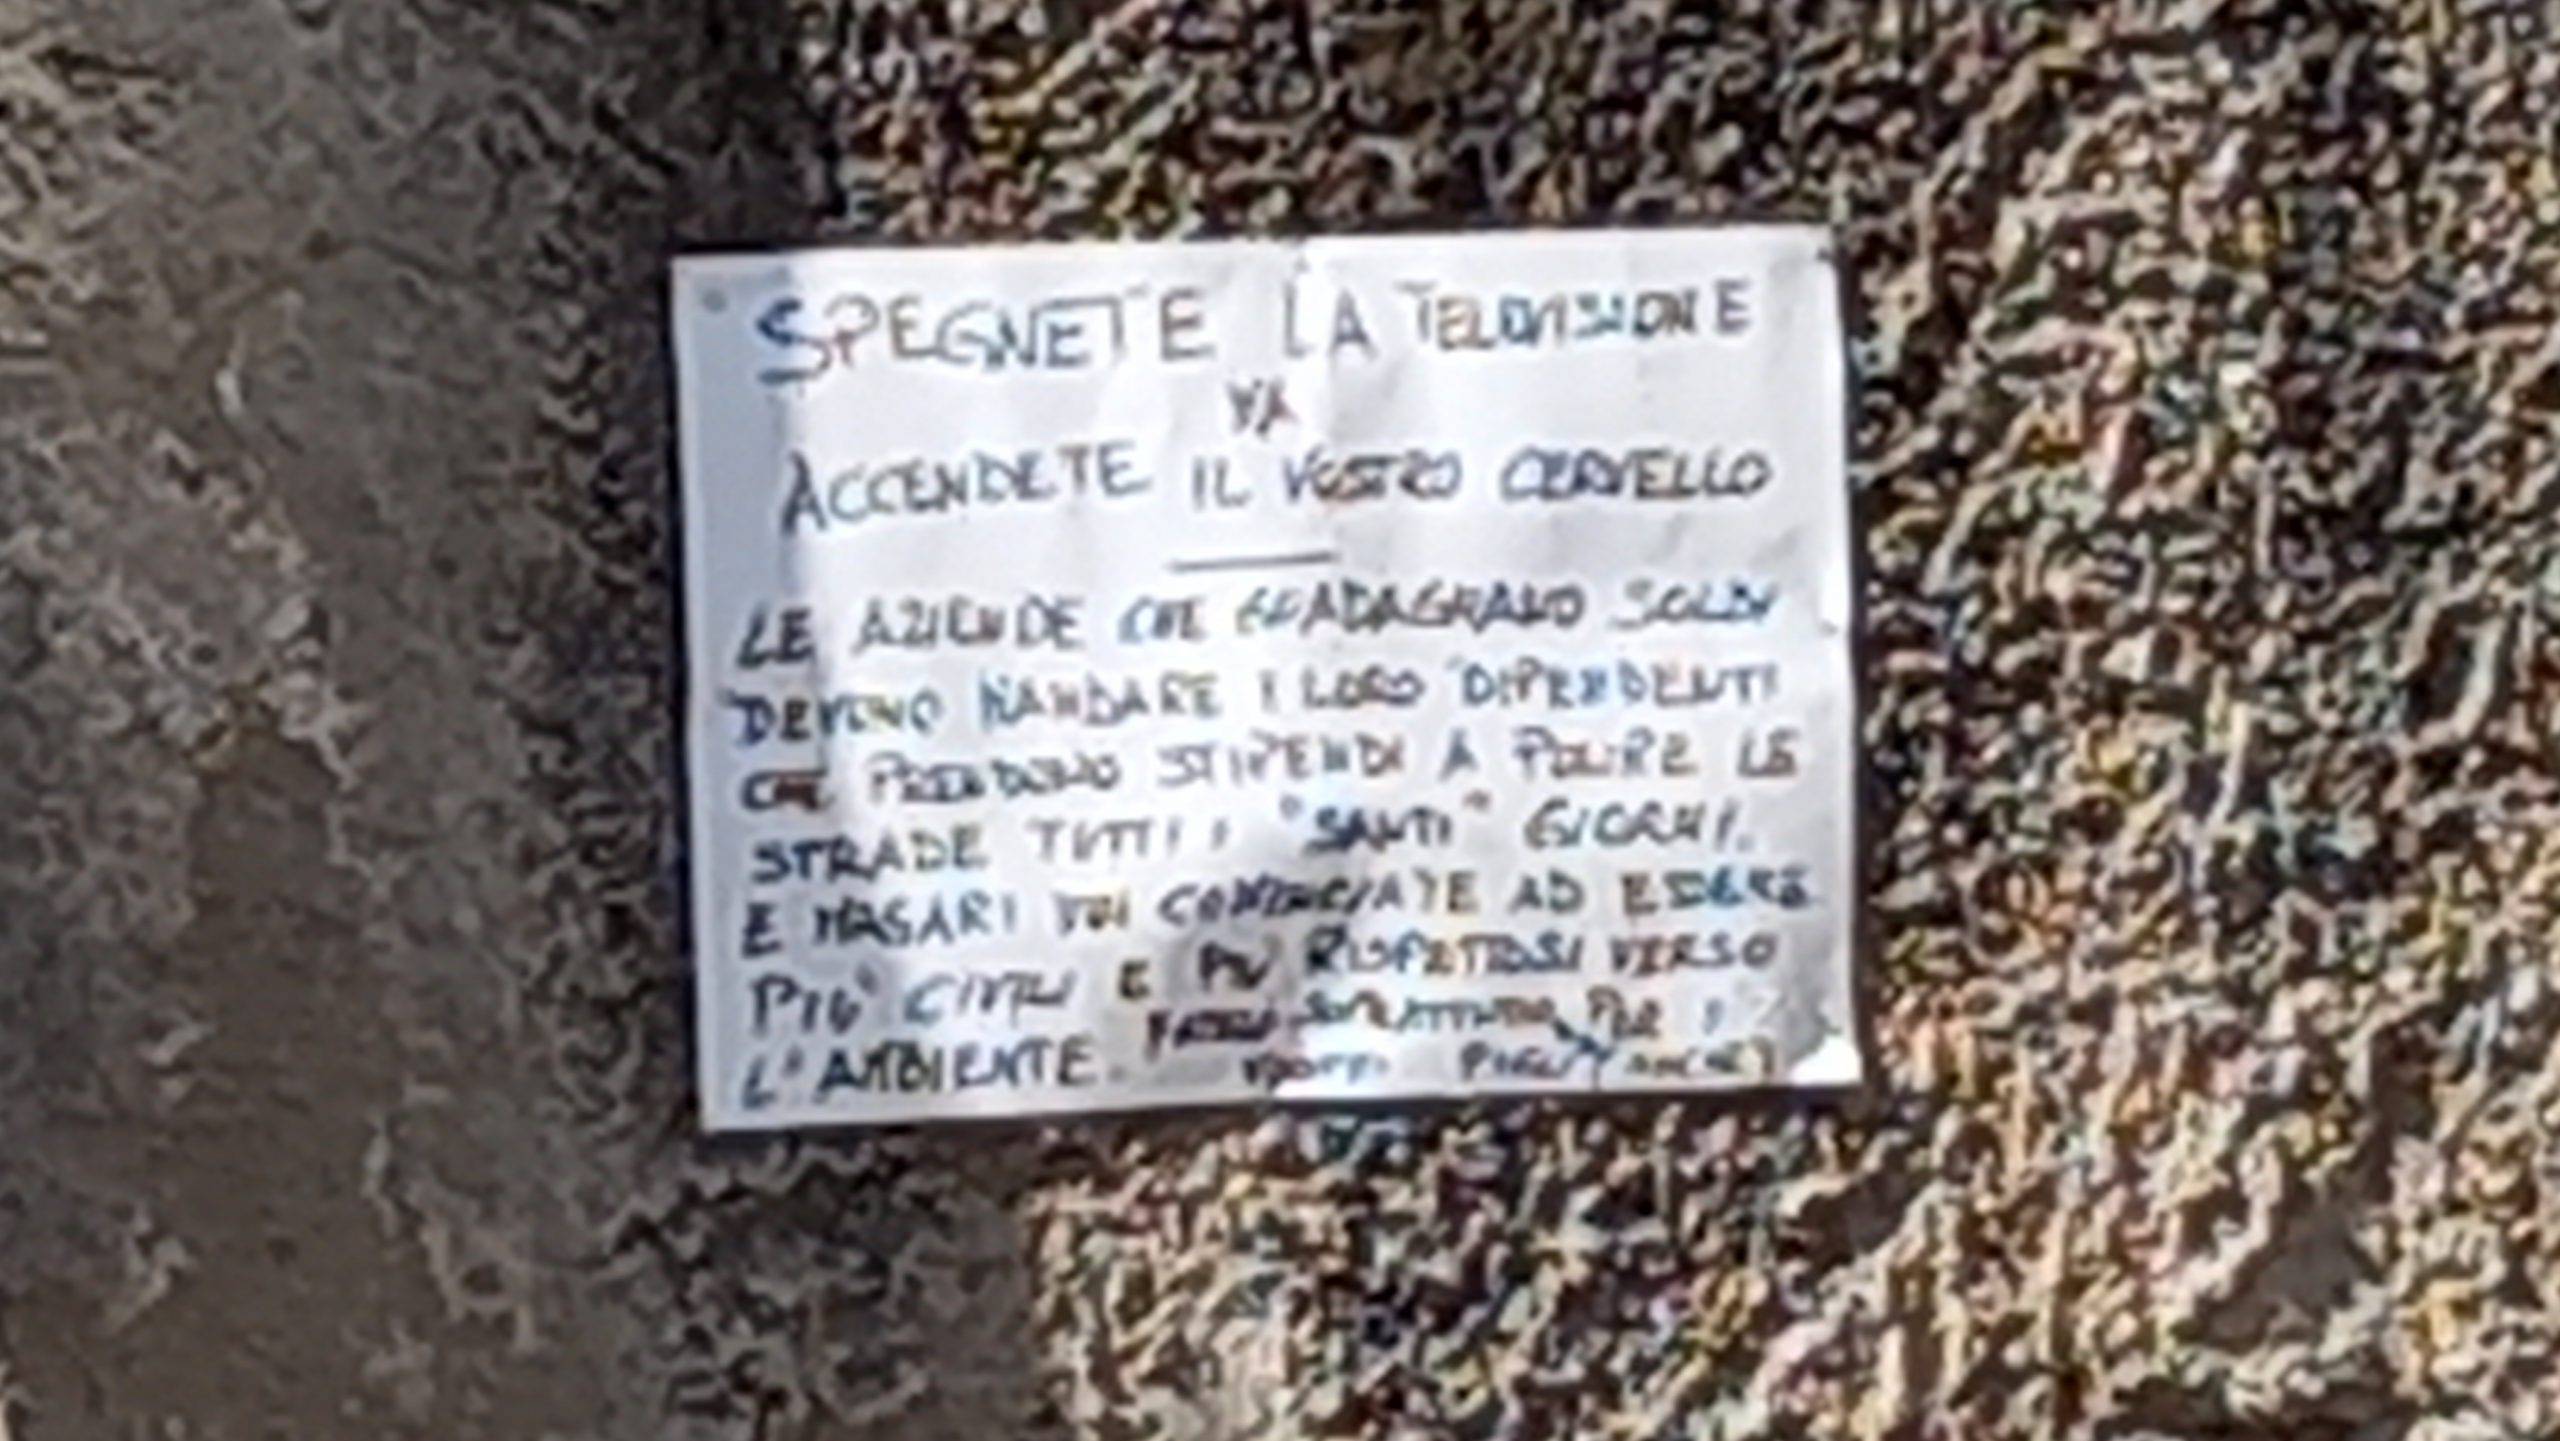 SPEGNETE LA TELEVISIONE
MA
ACCENDETE IL VOSTRO CERVELLO
LE AZIENDE CHE GUADAGNANO SOLDI
DEVONO MANDARE I LORO DIPENDENTI
CHE PRENDONO STIPENDI A PULIRE LE
STRADE TUTTI I "SANTI" GIORNI.
E MAGARI VOI COMINCIATE AD ESSERE
PIÙ CIVILI E PIÙ RISPETTOSI VERSO
L'AMBIENTE. FATELO SOPRATTUTTO PER I
VOSTRI FIGLI